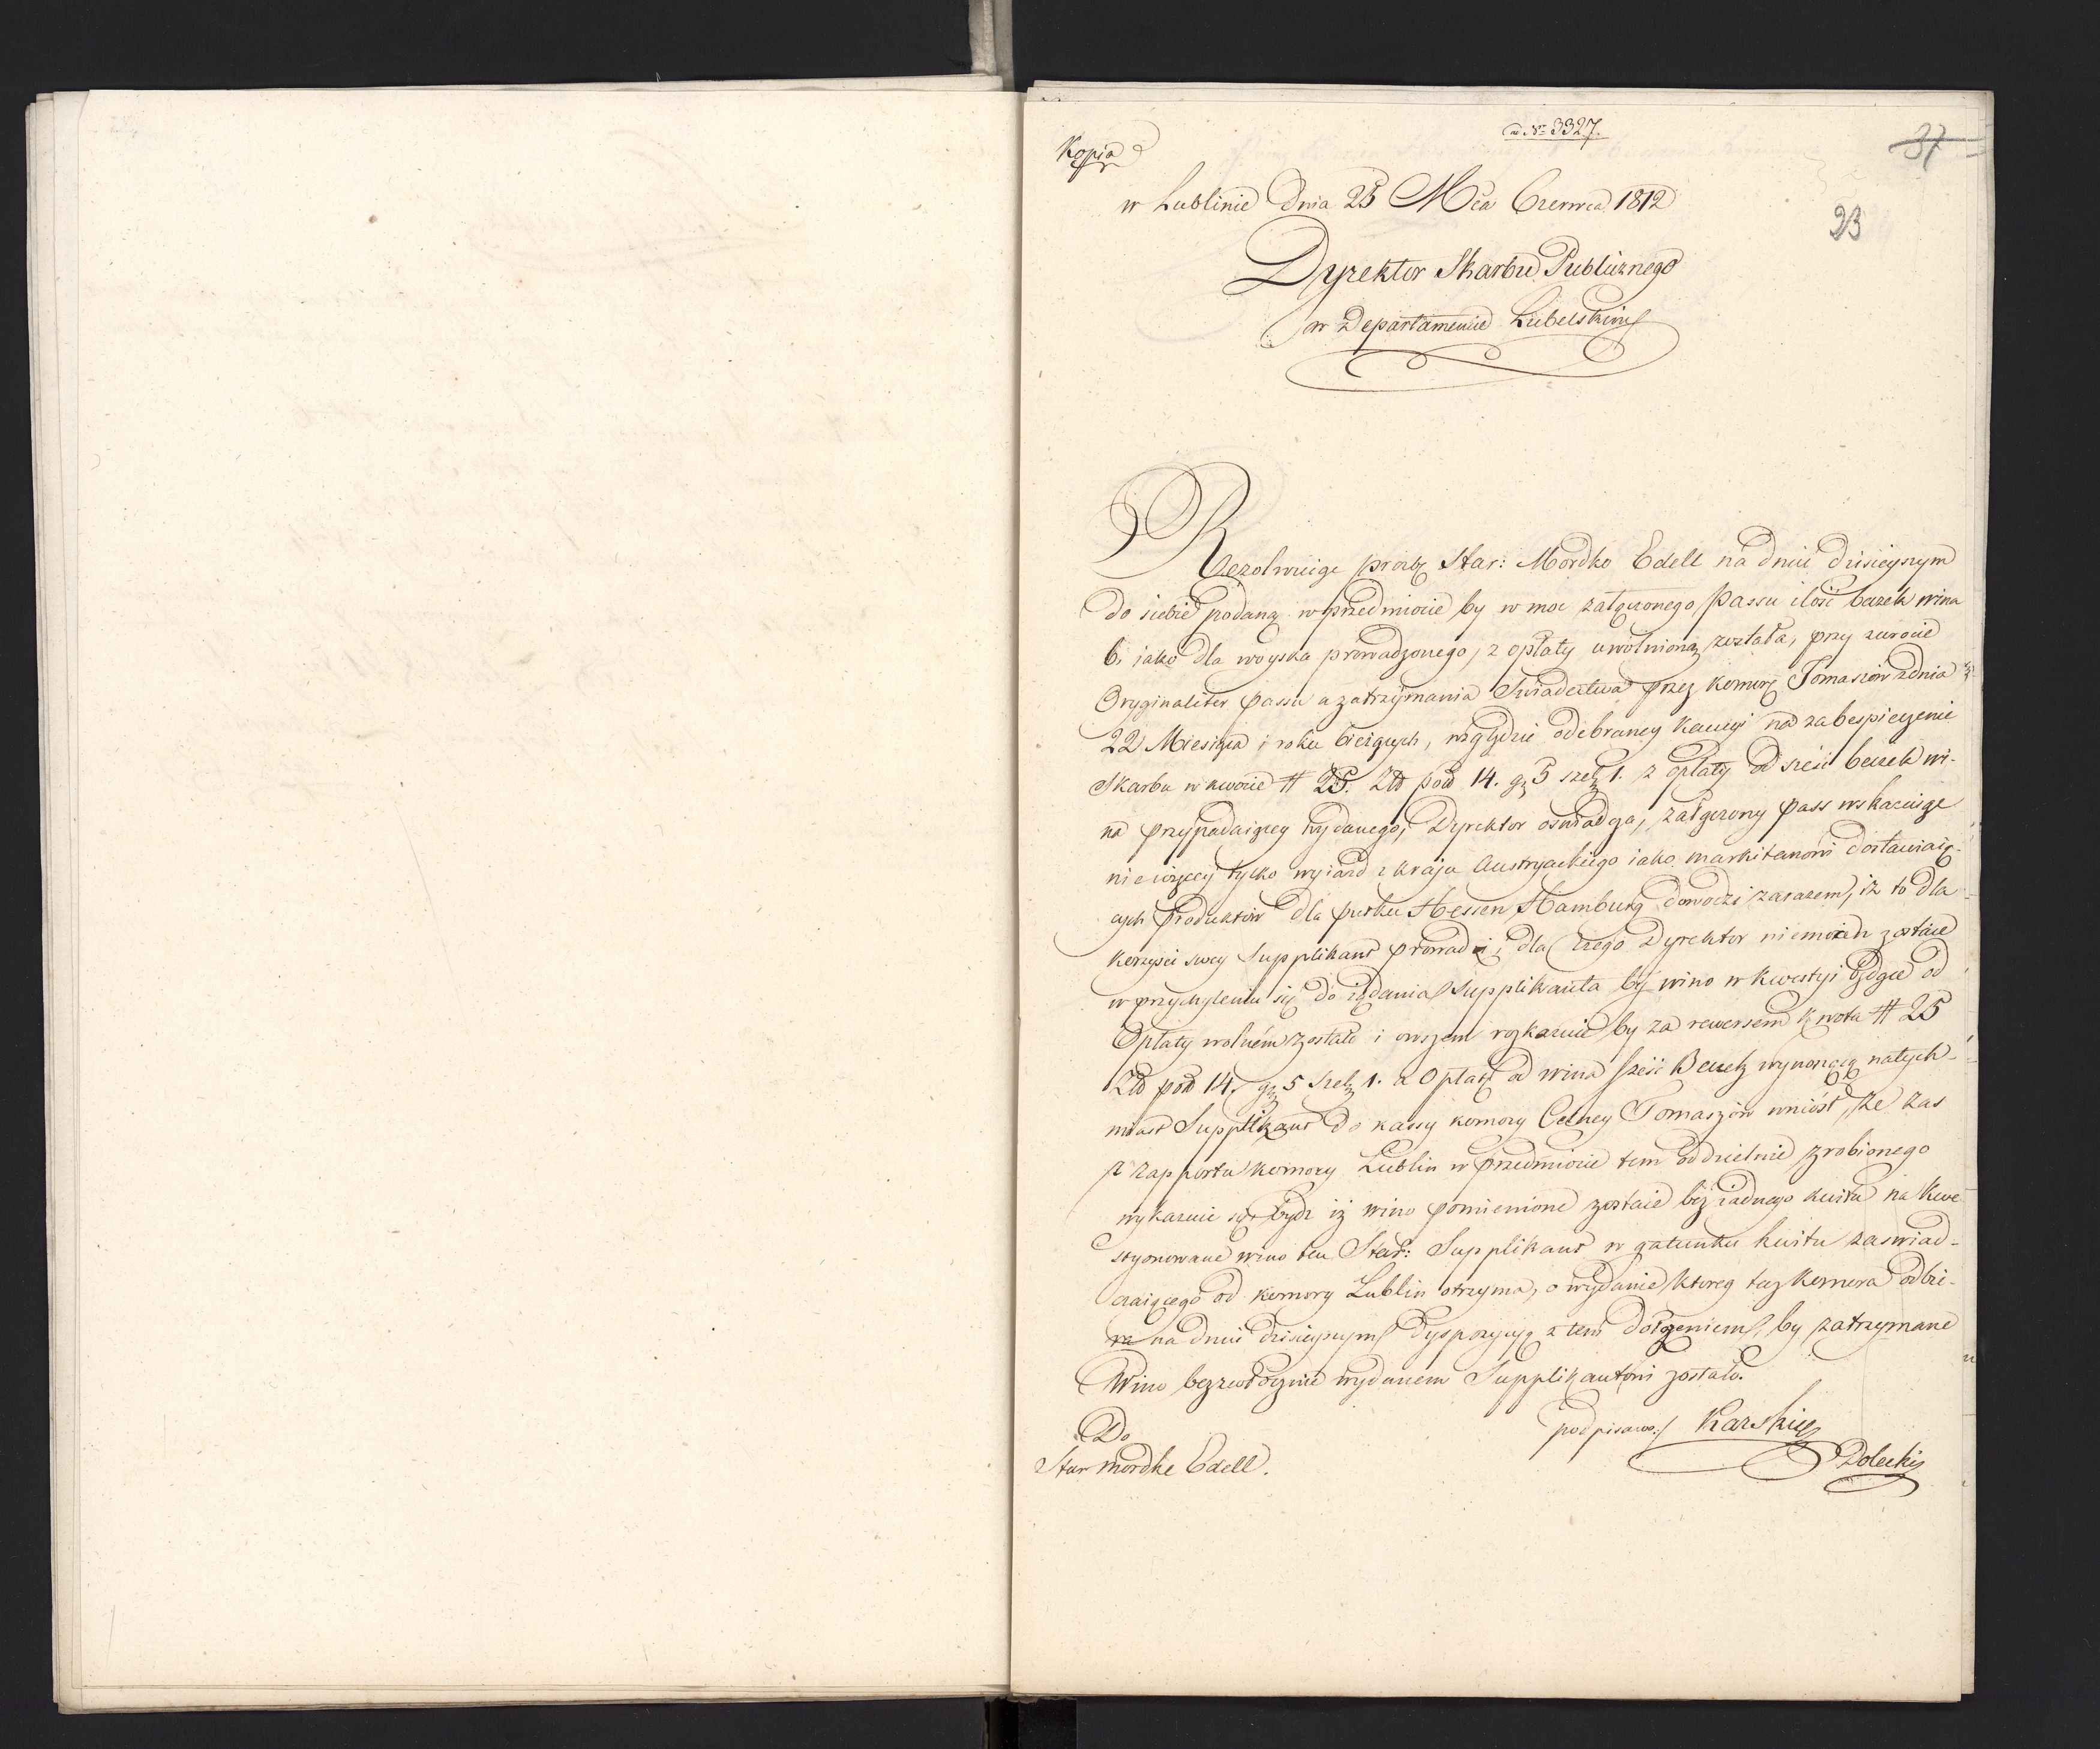 ad Nro 3327.
Kopia
37
w Lublinie dnia 25 Mca Czerwca 1812
23
Dyrektor Skarbu Publicznego
w Departamencie Lubelskim
Rezolwuiąc prożbę Star: Mordko Edell na dniu dzisieyszym
do siebie podaną w przedmiocie by w moc załączonego Passu ilość beczek wina
6. iako dla woyska prowadzonego, z opłaty uwolnioną została, przy zwrocie
Oryginaliter passu a zatrzymania Swiadectwa przez komorę Tomaszów z dnia
22 Miesiąca i roku bieżących, względzie odebraney kaucyi na zabespieczenie
Skarbu w kwocie # 25. Złp pol 14. gr 5 szelg 1. z opłaty od sześć beczek wi-
na przypadaiącey wydanego, Dyrektor oświadcza, załączony pass wskazuiąc
niewięcey tylko wyiazd z kraju Austryackiego iako markitanowi dostawiaią-
cych Produktów dla pułku Hessen Hamburg dowodzi zarazem, iż to dla
korzyści swey Supplikant prowadzi, dla czego Dyrektor niemożen zostaie
w przychyleniu się do żądania Supplikanta by wino w kwestyi będące od
Opłaty wolném zostało i owszem rozkazuie by za rewersem kwota # 25
Złp pol 14. gr 5 szelg 1. z Opłaty od wina sześć Beczek wynoszącą natych-
miast Supplikant do kassy komory Celney Tomaszów wniósł, że zas
z rapportu komory Lublin w przedmiocie tem oddzielnie zrobionego
wykazuie się bydz iż wino pomienione zostaie bez żadnego kwitu na kwe
styonowane wino ten Star: Supplikant w gatunku kwitu zaswiad-
czaiącego od komory Lublin otrzyma, o wydanie ktoreg taż komora odbie-
ra na dniu dzisieyszym dyspozycyę z tem dołożeniem, by zatrzymane
Wino bezzwłocznie wydanem Supplikantowi zostało.
Do
podpisano:/ Karski
Star Mordke Edell.
Dolecki